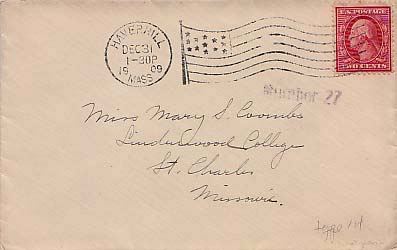 HAVERHILL
DEC 31
1-30P
1909
MASS.
U.S. POSTAGE
TWO CENTS
Number 27
Miss Mary S. Coombs
Lindenwood College
St. Charles
Missouri.